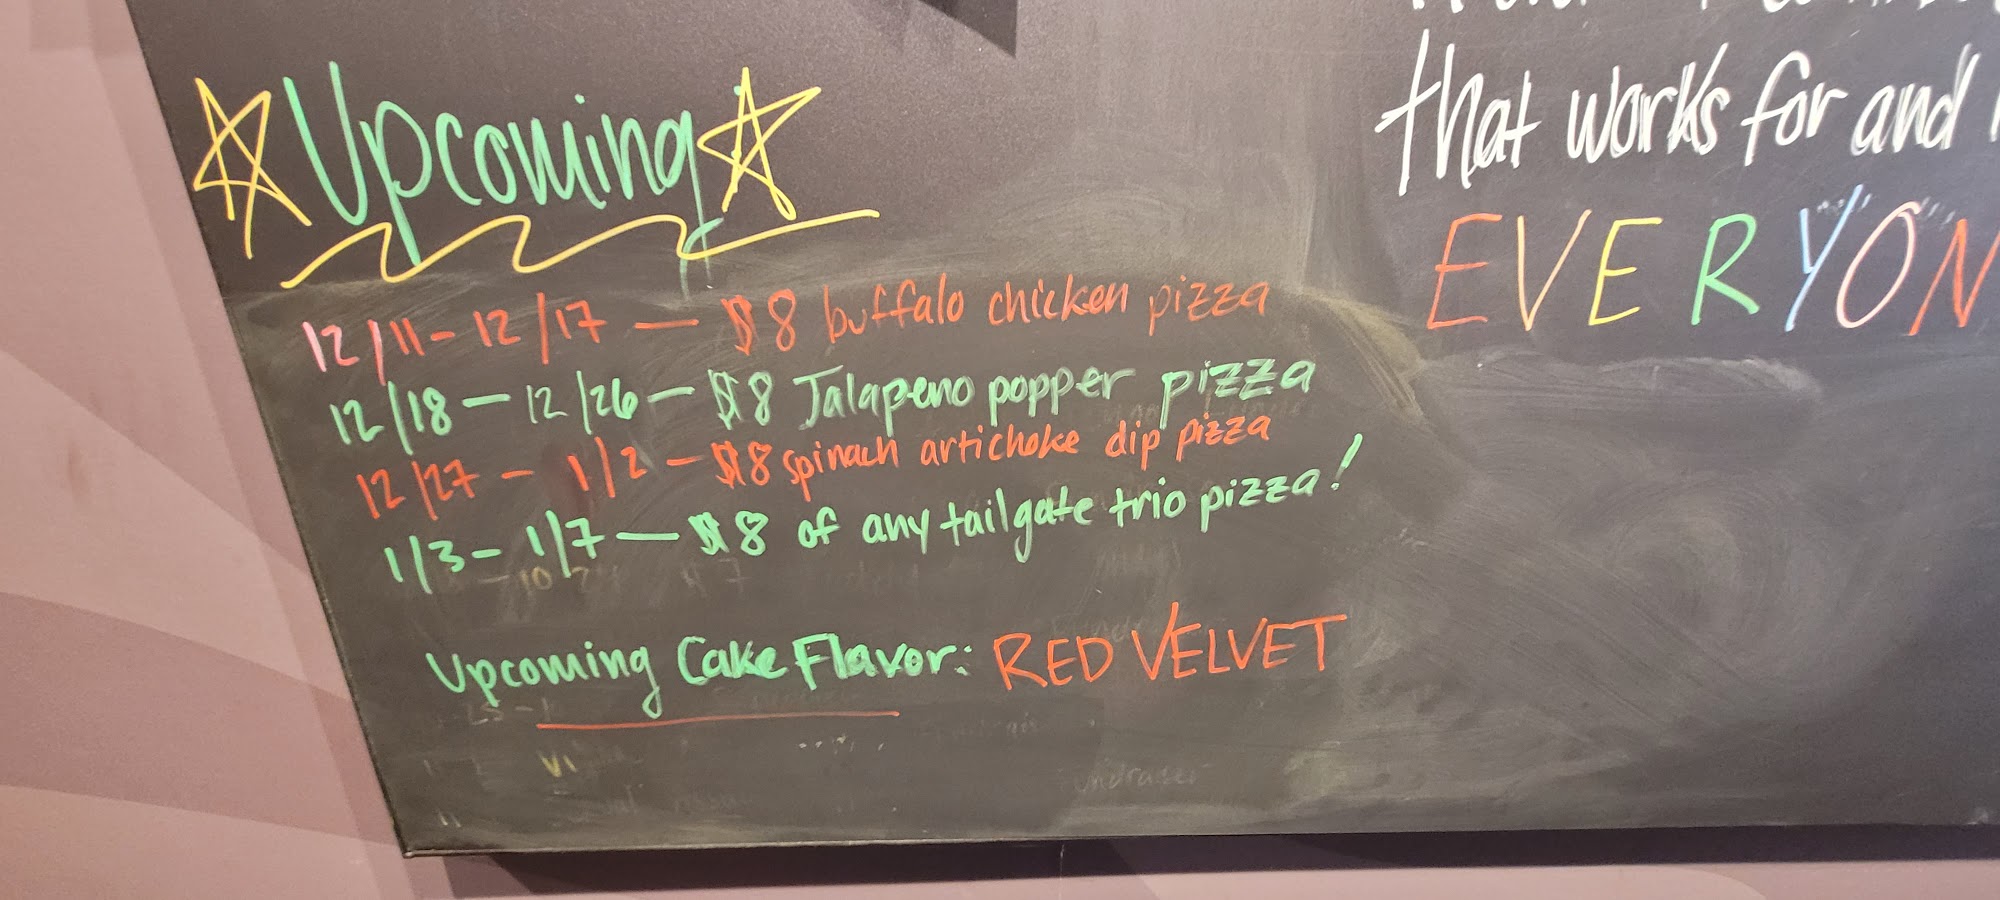 Upcoming
12/11 - 12/17 — $8 buffalo chicken pizza
12/18 - 12/26 - $8 Jalapeno popper pizza
12/27 - 1/2 - $8 spinach artichoke dip pizza
1/3 - 1/7 — $8 of any tailgate trio pizza!
Upcoming Cake Flavor: RED VELVET
that works for and
EVERYON